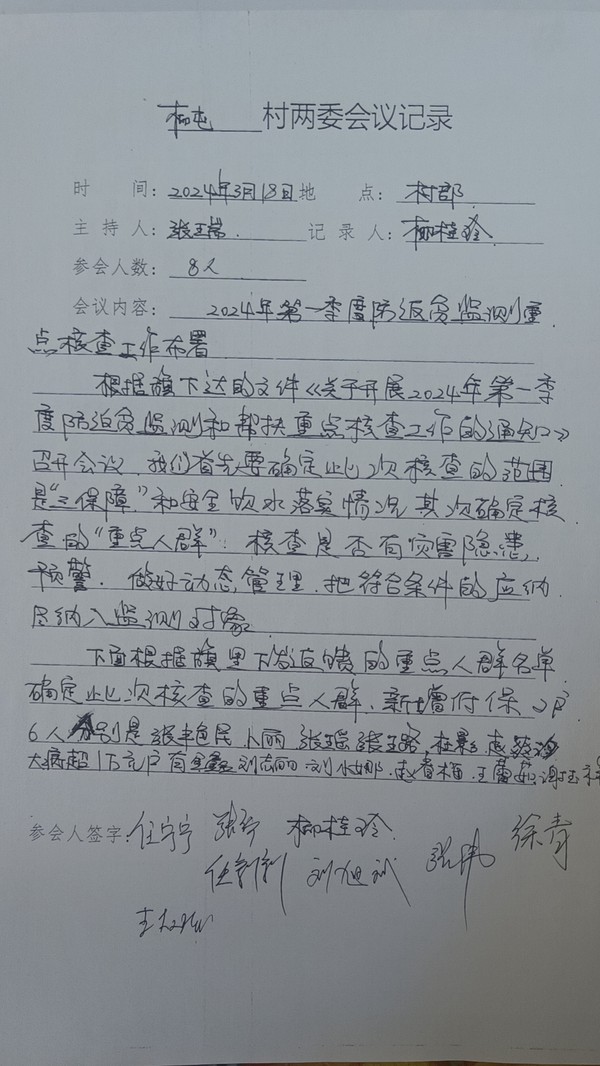 柳屯 村两委会议记录
时 间: 2024年3月18日 地 点: 村部
主 持 人: 记 录 人: 柳桂玲
参会人数: 8人
会议内容: 2024年第一季度防返贫监测重
点核查工作布署
根据旗下达的文件《关于开展2024年第一季
度防返贫监测和帮扶重点核查工作的通知》
召开会议。我们首先要确定此次核查的范围
是“三保障”和安全饮水落实情况其次确定核
查的“重点人群”: 核查是否有灾害隐患,
预警. 做好动态管理. 把符合条件的应纳
尽纳入监测对象
下面根据旗里下发反馈的重点人群名单
确定此次核查的重点人群. 新增低保 2户
6人分别是 卜丽
大病超1万元户有 刘志丽 刘水娜. 赵春梅.
参会人签字: 任宁宁 柳桂玲 徐青
刘旭斌 张伟